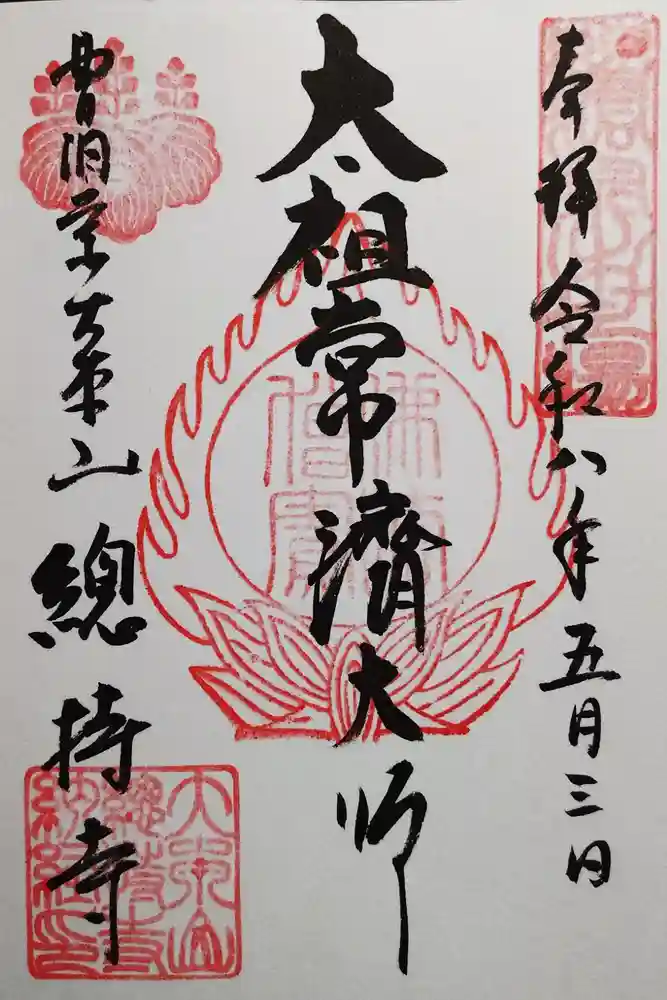 奉拝 令和八年五月三日
太祖常濟大師
佛法
僧寶
曹洞宗大本山 總持寺
大本山
總持寺
納經印